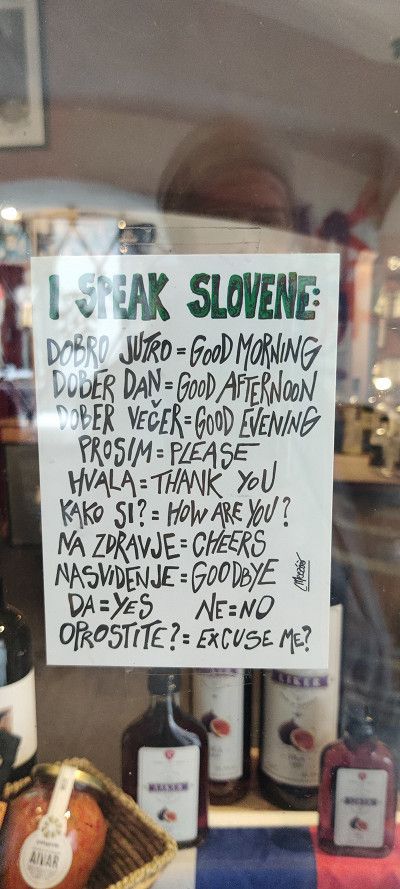 I SPEAK SLOVENE:
DOBRO JUTRO = GOOD MORNING
DOBER DAN = GOOD AFTERNOON
DOBER VEČER = GOOD EVENING
PROSIM = PLEASE
HVALA = THANK YOU
KAKO SI? = HOW ARE YOU?
NA ZDRAVJE = CHEERS
NASVIDENJE = GOODBYE
DA = YES NE = NO
OPROSTITE? = EXCUSE ME?
AJVAR